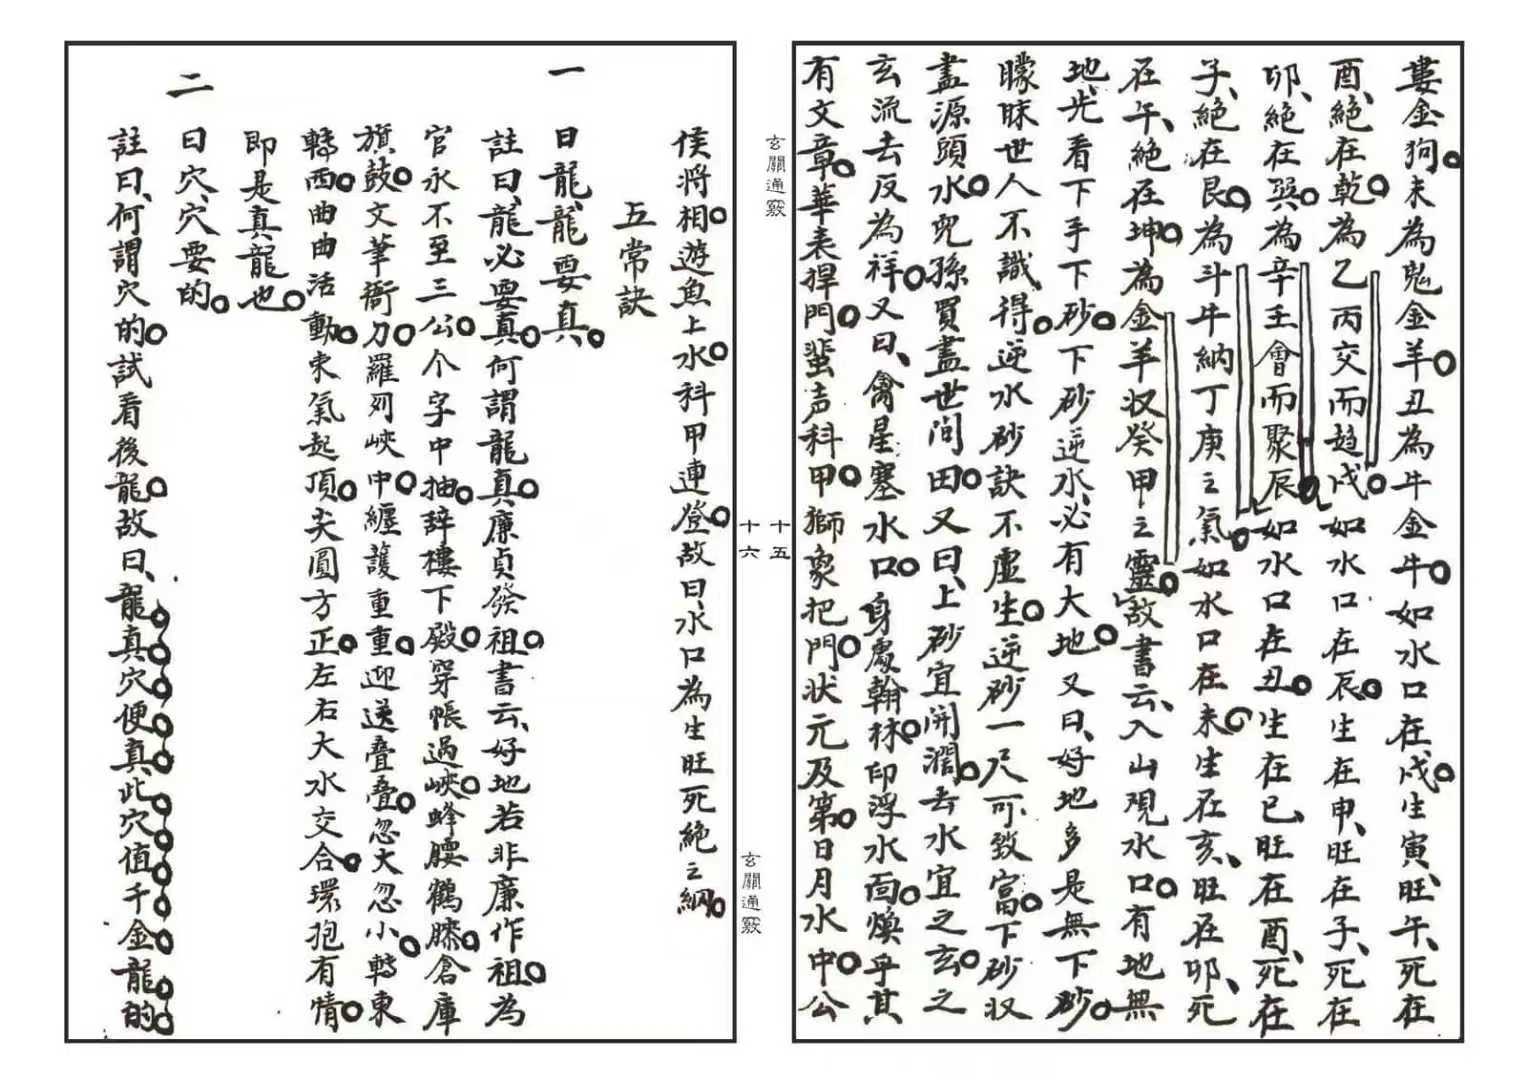 婁金狗未為鬼金羊丑為牛金牛如水口在戌生寅、旺午、死在
酉、絕在乾為乙丙交而趋戌如水口在辰生在申、旺在子、死在
卯、絕在巽為辛壬會而聚辰如水口在丑生在巳、旺在酉、死在
子、絕在艮為斗牛納丁庚之氣如水口在未生在亥、旺在卯、死
在午、絕在坤為金羊收癸甲之靈故書云、入山观水口有地無
地、先看下手下砂下砂逆水、必有大地又曰、好地多是無下砂
矇昧世人不識得逆水砂訣不虛生逆砂一尺可致富下砂収
盡源頭水兜孫買盡世间田又曰、上砂宜開濶去水宜之玄之
玄流去反為祥又曰、禽星塞水口身處翰林印浮水面煥乎其
有文章華表捍門蜚声科甲獅象把門状元及第日月水中公
侯将相遊魚上水科甲連登故曰、水口為生旺死絕之綱
五常訣
一
曰龍、龍要真
註曰、龍必要真何謂龍真廉貞發祖書云、好地若非廉作祖為
官永不至三公个字中抽辞樓下殿穿帳過峽蜂腰鶴膝倉庫
旗鼓文筆衙刀羅列峽中纏護重重迎送叠叠忽大忽小轉東
轉西曲曲活動束氣起頂尖圓方正左右大水交合環抱有情
即是真龍也
二
曰穴、穴要的
註曰、何謂穴的試看後龍故曰、龍真穴便真此穴值千金龍的
玄關通竅
十五
十六
玄關通竅